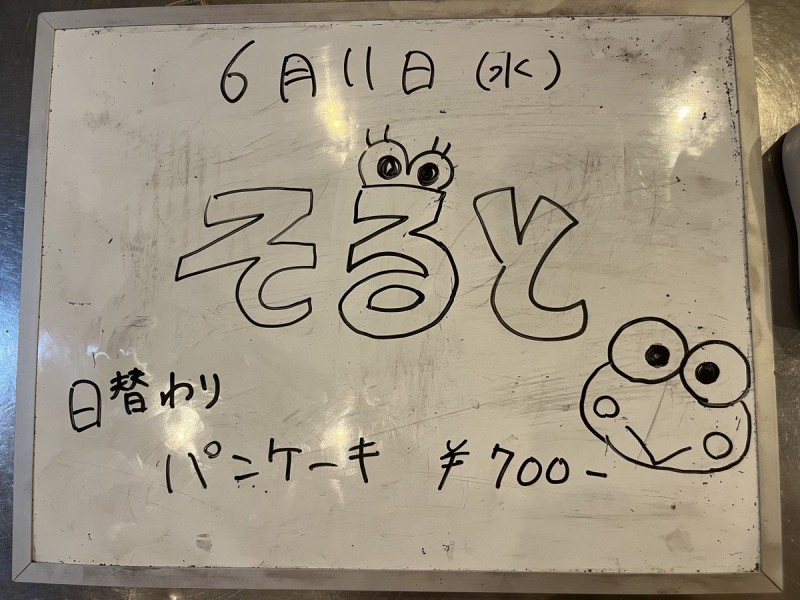 6月11日(水)
そると
日替わり
パンケーキ ¥700-